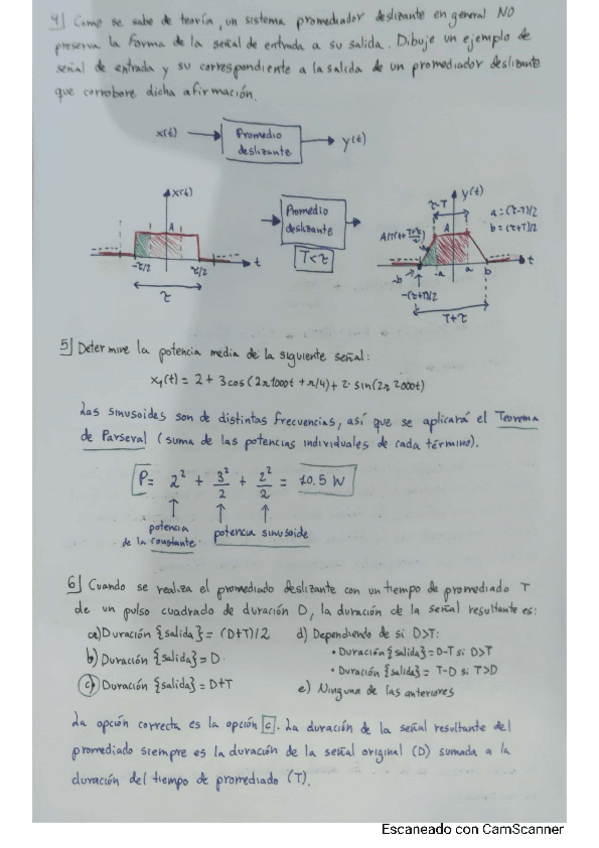 4] Como se sabe de teoría, un sistema promediador deslizante en general NO
preserva la forma de la señal de entrada a su salida. Dibuje un ejemplo de
señal de entrada y su correspondiente a la salida de un promediador deslizante
que corrobore dicha afirmación.
x(t) → Promedio deslizante → y(t)
x(t)
A
-τ/2 τ/2 t
τ
Promedio
deslizante
T<τ
y(t)
τ-T
a=(τ-T)/2
b=(τ+T)/2
A
-b -a a b t
-(τ+T)/2
T+τ
5] Determine la potencia media de la siguiente señal:
x₁(t) = 2 + 3cos(2π1000t + π/4) + 2·sin(2π2000t)
Las sinusoides son de distintas frecuencias, así que se aplicará el Teorema
de Parseval (suma de las potencias individuales de cada término).
P = 2² + 3²/2 + 2²/2 = 10.5 W
potencia de la constante potencia sinusoide
6] Cuando se realiza el promediado deslizante con un tiempo de promediado T
de un pulso cuadrado de duración D, la duración de la señal resultante es:
a) Duración {salida} = (D+T)/2 d) Dependiendo de si D>T:
• Duración {salida} = D-T si D>T
b) Duración {salida} = D
• Duración {salida} = T-D si T>D
c) Duración {salida} = D+T e) Ninguna de las anteriores
La opción correcta es la opción c. La duración de la señal resultante del
promediado siempre es la duración de la señal original (D) sumada a la
duración del tiempo de promediado (T).
Escaneado con CamScanner